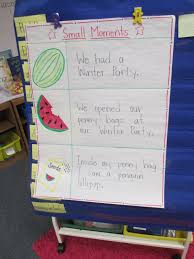 Small Moments
We had a
Winter Party.
We opened our
penny bags at
our Winter Party.
Inside my penny bag
I saw a penguin
lollipop.